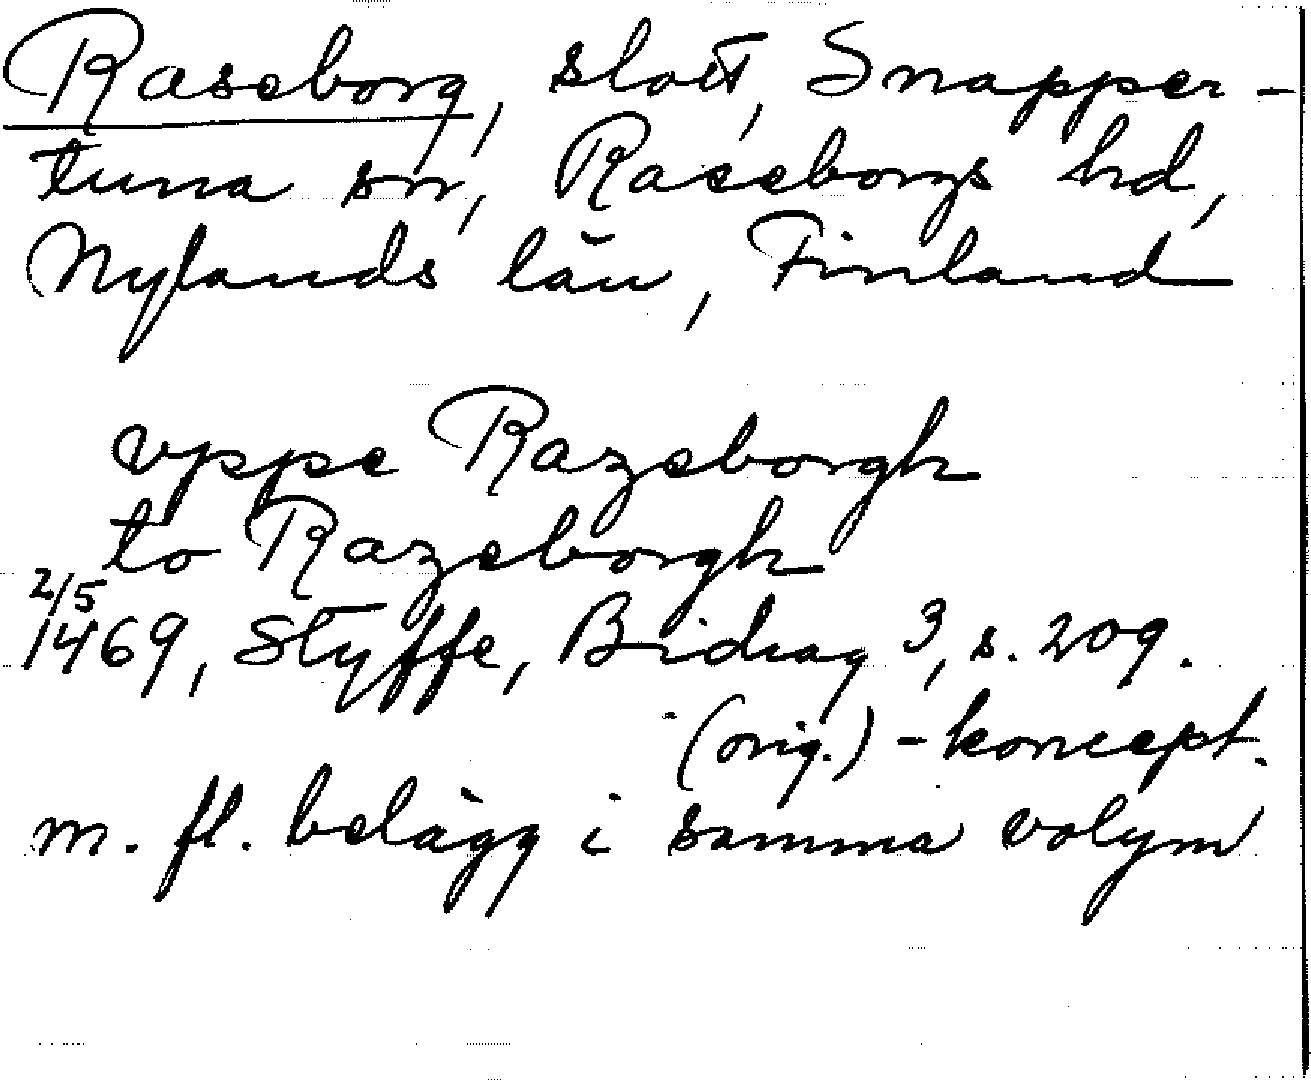 Raseborg, slott, Snapper-
tuna sn, Raseborgs hd,
Nylands län, Finland
vppe Razeborgh
to Razeborgh
2/5
1469, Styffe, Bidrag 3, s. 209.
(orig.) - koncept.
m. fl. belägg i samma volym